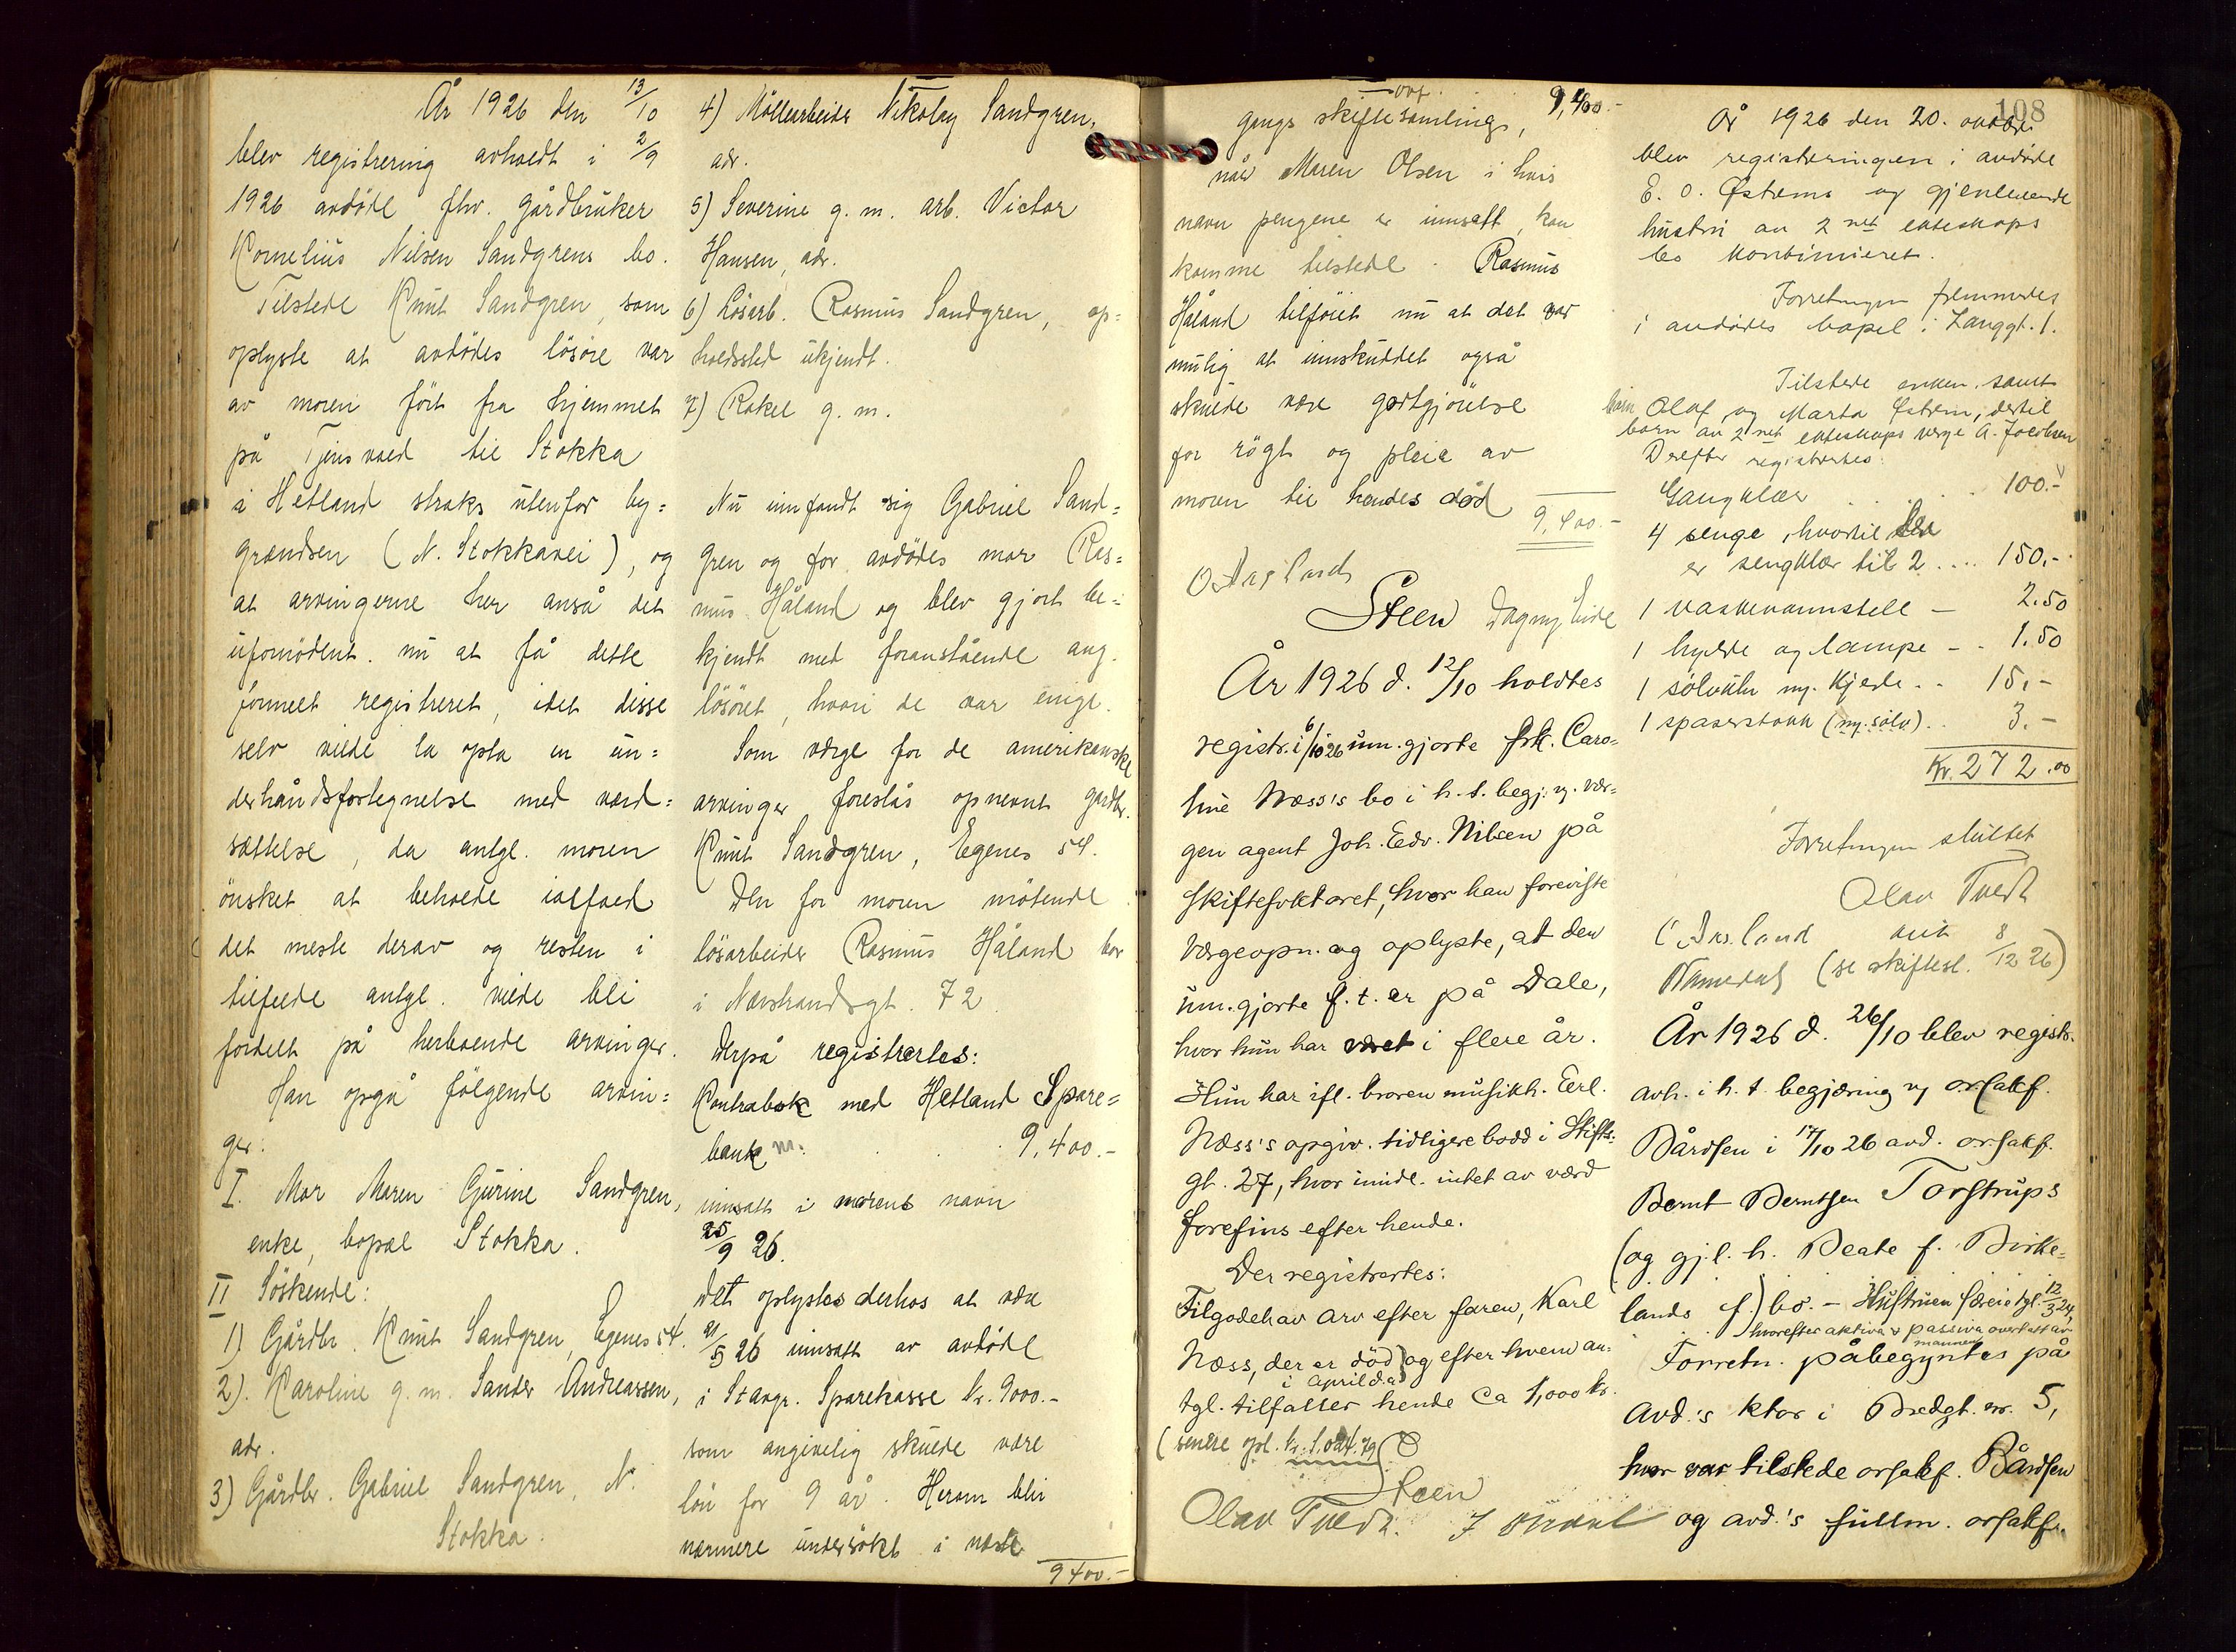 År 1926 den 13/10
blev registrering avholdt i 2/9
1926 avdöde fhv. gårdbruker
Kornelius Nilsen Sandgrens bo.
Tilstede Knut Sandgren, som
oplyste at avdödes lösöre var
av moren fört fra hjemmet
på Tjensvold til Stokka
i Hetland straks utenfor by=
grændsen (N. Stokkavei), og
at arvingerne her anså det
ufornödent nu at få dette
formelt registreret, idet disse
selv vilde la opta en un=
derhåndsfortegnelse med værd=
sættelse, da antgl. moren
önsket at beholde ialfald
det meste derav og resten i
tilfelde antgl. vilde bli
fordelt på herboende arvinger.
Han opgå fölgende arvin=
ger:
I. Mor Maren Gurine Sandgren,
enke, bopæl Stokka.
II Söskende:
1) Gårdbr. Knut Sandgren, Egenes 54.
2). Karoline g. m. Sander Andreassen,
adr.
3) Gårdbr. Gabriel Sandgren, N.
Stokka.
4) Möllearbeider Nikolay Sandgren,
adr.
5) Severine g. m. arb. Victor
Hansen, adr.
6) Lösarb. Rasmus Sandgren, op=
holdssted ukjendt.
7) Rakel g. m.
Nu innfandt sig Gabriel Sand=
gren og for avdödes mor Ras=
mus Håland og blev gjort be=
kjendt med foranstående ang.
lösöret, hvori de var enige.
Som verge for de amerikanske
arvinger foreslås opnevnt gardbr.
Knut Sandgren, Egenes 54.
Den for moren mötende
lösarbeider Rasmus Håland bor
i Nedstrandsgt. 72
Derpå registrertes:
Kontrabok med Hetland Spare=
bank m. . . 9,400.-
innsatt i morens navn
25/9 26.
Det oplystes derhos at være
21/5 26 innsatt av avdöde
i Stavgr. Sparekasse kr. 9000.-
som angivelig skulde være
lön for 9 år. Herom blir
nærmere undersökt i næste
9400.-
ovf. 9,400.-
gangs skiftesamling,
når Maren Olsen i hvis
navn pengene er innsatt, kan
komme tilstede. Rasmus
Håland tilföiet nu at det var
mulig at innskuddet også
skulde være godtgjörelse
for rögt og pleie av
moren til hendes död
9,400.-
O Aasland
Steen Dagny Eide
År 1926 d. 12/10 holdtes
registr. i 6/10 26 um. gjorte frk. Caro=
line Næss's bo i h. t. begj. v. vær=
gen agent Joh. Edv. Nilsen på
skiftefoktoret, hvor han foreviste
værgeopn. og oplyste, at den
um. gjorte f. t. er på Dale,
hvor hun har været i flere år.
Hun har ifl. broren musikh. Erl.
Næss's opgiv. tidligere bodd i Stifts=
gt. 27, hvor imidl. intet av værd
forefins efter hende.
Der registrertes:
Tilgodehav arv efter faren, Karl
Næss, der er död og efter hvem an=
i april d. a.
tgl. tilfaller hende ca 1,000 kr.
(senere opl. kr. 1,024.79)
Steen
Olav Tvedt.
108
År 1926 den 20. oktober
blev registreringen i avdöde
E. O. Østrems og gjenlevende
hustru av 2net ekteskaps
bo kontinueret.
Forretningen fremmedes
i avdödes bopel i Langgt. 1.
Tilstede enken samt
barn Olaf og Marta Østrem, dertil
barn av 2net ekteskaps verge A. Jacobsen
Derefter registrertes:
Gangklær . . . . 100.-
4 senge, hvortil der
er sengklær til 2 .... 150.-
1 vaskevannstell - 2.50
1 hylde og lampe - . 1.50
1 sölvuhr m. kjede. . 15.-
1 spaserstokk (m. sölv). . 3.-
Kr. 272.00
Forretningen sluttet
Olav Tvedt
O Aasland
(se skiftesl. 8/12 26)
År 1926 d. 26/10 blev registr.
avh. i h. t. begjæring v. orsakf.
Bårdsen i 17/10 26 avd. orsakf.
Bernt Berntsen Torstrups
(og gj.l. h. Beate f. Birke=
lands f.) bo. - Hustruen særeie tgl. 12/3 24,
hvorefter aktiva & passiva overtatt av
mannen
Forretn. påbegyntes på
Avd.'s ktor i Bredgt. nr. 5,
hvor var tilstede orsakf. Bårdsen
og avd.'s fullm. orsakf.